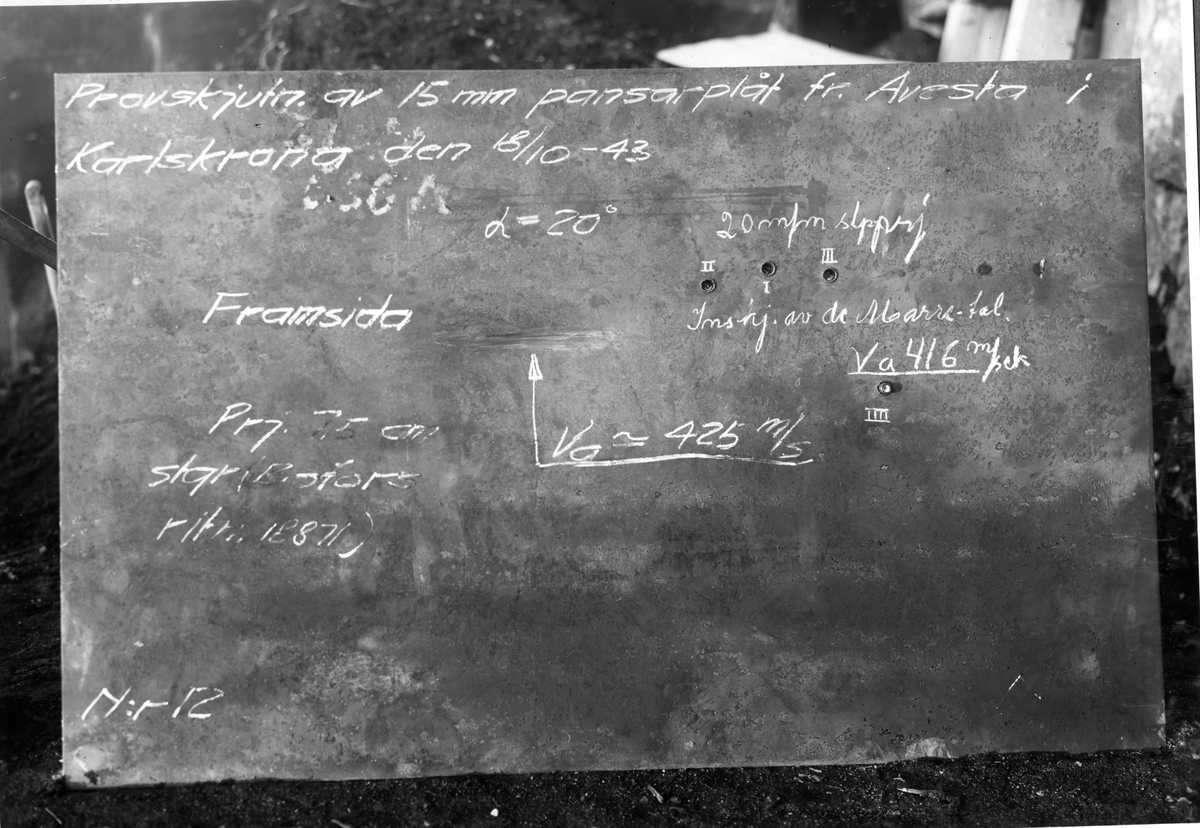 Provskjutn. av 15 mm pansarplåt fr. Avesta i
Karlskrona den 18/10-43
α = 20°
20 m/m slpprj
II
I
III
Framsida
Inskj. av de Marre-tal.
Va 416 m/sek
IIII
Prj. 7,5 cm
Va ≈ 425 m/s
sgr (Bofors
ritn. 18871)
N:r 12